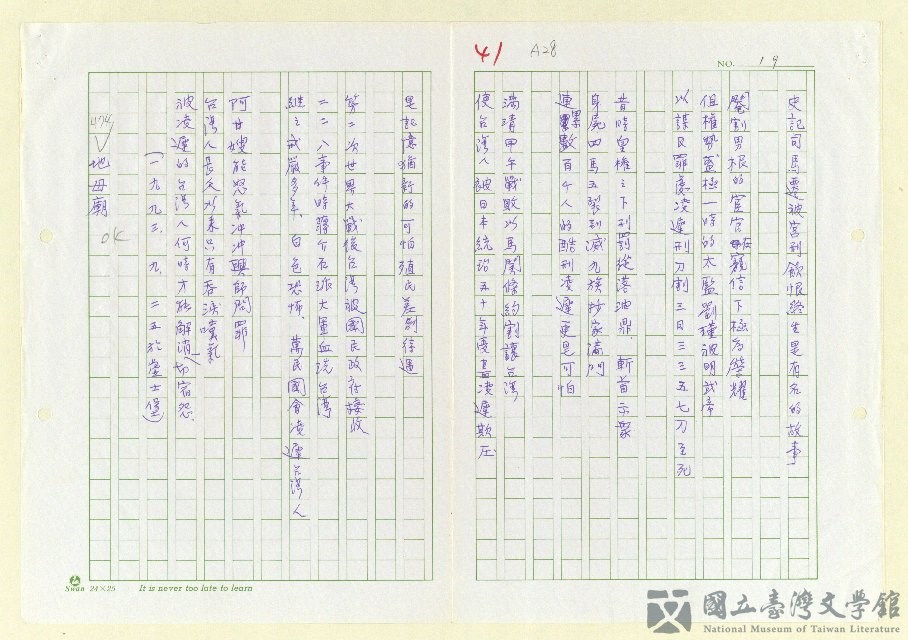 41
A28
NO. 19
史記司馬遷被宮刑飲恨終生是有名的故事
閹割男根的宦官在寵信下極為榮耀
但權勢蓋極一時的太監劉瑾被明武帝
以謀反罪處凌遲刑刀割三日三三五七刀至死
昔時皇權之下刑罰從落油鼎、斬首示眾
身屍四馬五裂到滅九族抄家滿門
連累數百千人的酷刑凌遲更是可怕
滿清甲午戰敗以馬關條約割讓台灣
使台灣人被日本統治五十年受盡凌遲欺压
是記憶猶新的可怕殖民差別待遇
第二次世界大戰後台灣被國民政府接收
二二八事件時蔣介石派大軍血洗台灣
繼之戒嚴多年、白色恐怖、萬民國會凌遲台灣人
阿廿嫂能怒氣冲冲興師問罪
台灣人長久以來只有吞淚嘆氣
被凌遲的台灣人何時才能解消一切宿怨
（一九九三、九、二五於瑩士堡）
地母廟
OK
Swan 24×25 It is never too late to learn
國立臺灣文學館
National Museum of Taiwan Literature